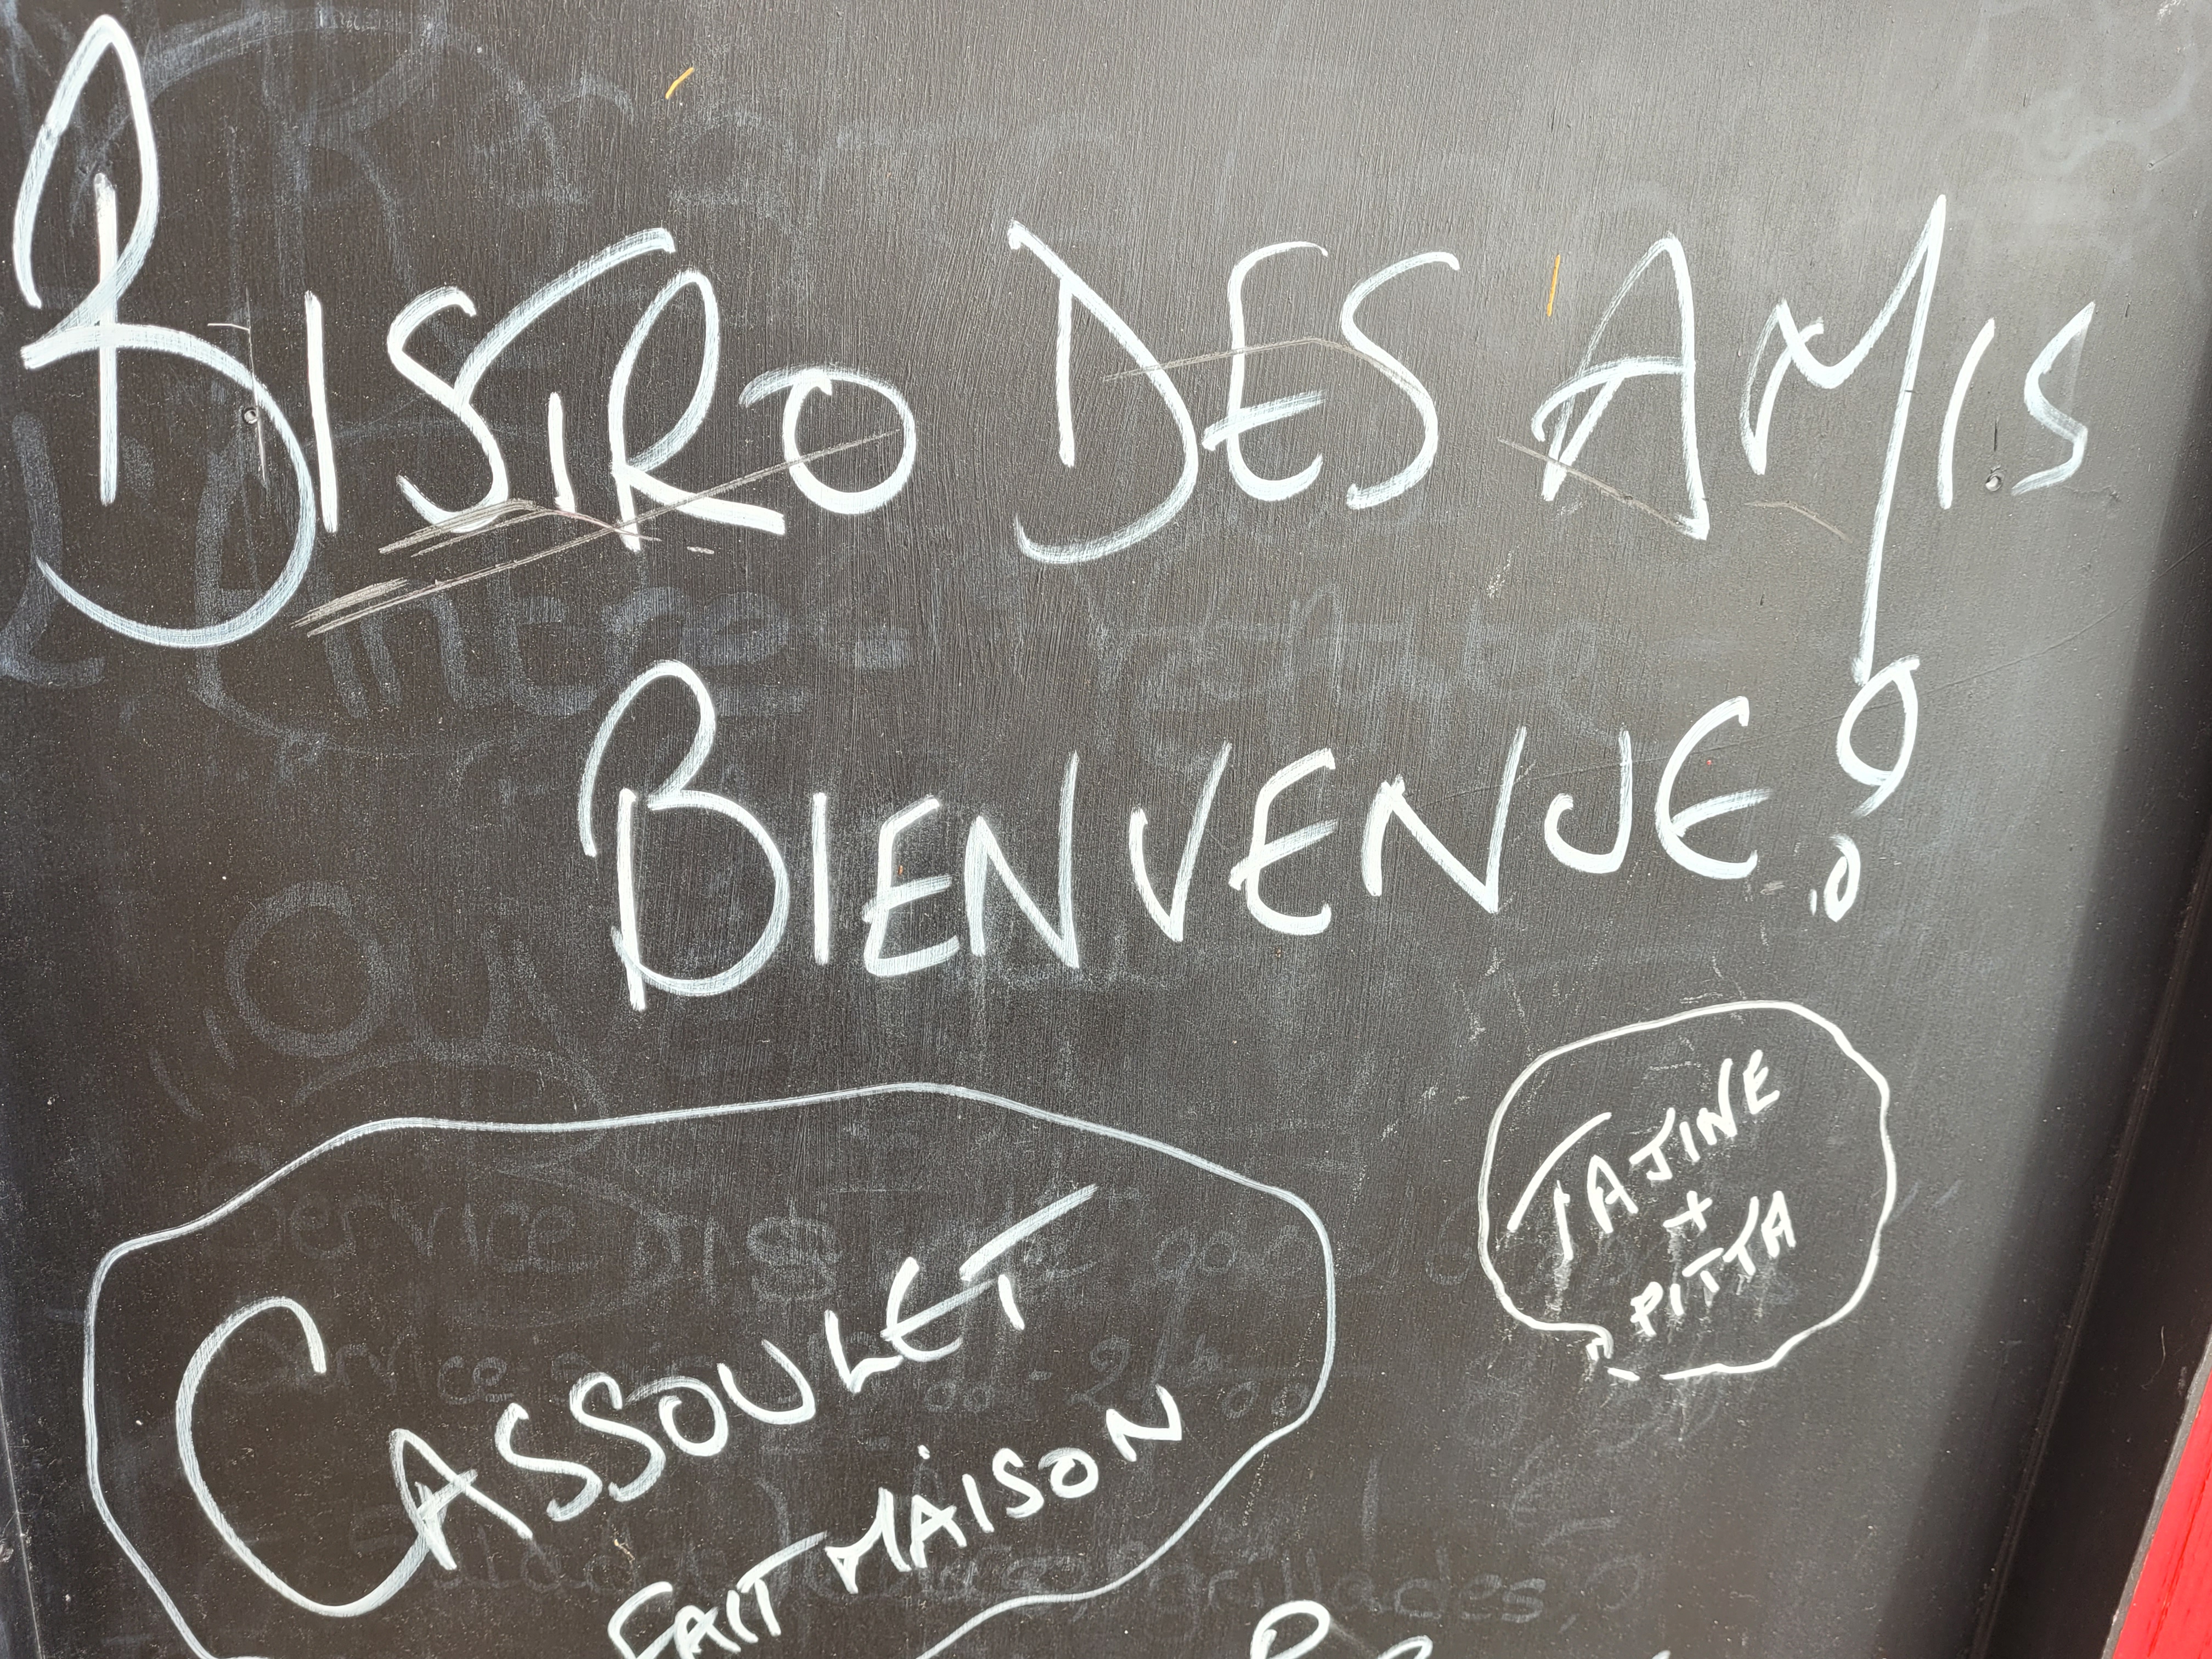 BISTRO DES AMIS
BIENVENUE!
TAJINE
+
PITTA
CASSOULET
FAIT MAISON